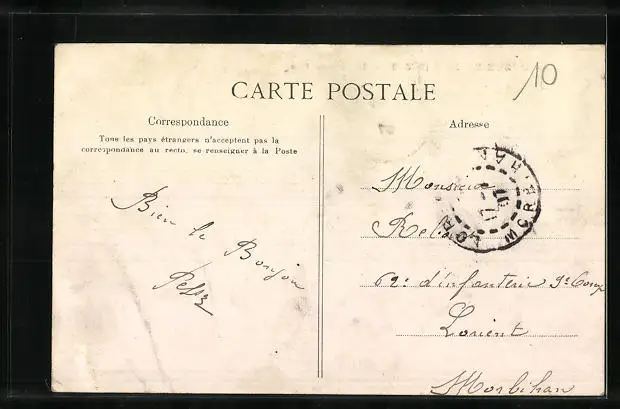 10
CARTE POSTALE
Correspondance
Tous les pays étrangers n'acceptent pas la
correspondance au recto, se renseigner à la Poste
Bien le Bonjour
Adresse
Monsieur
62e d'infanterie 9e Comp
Lorient
Morbihan